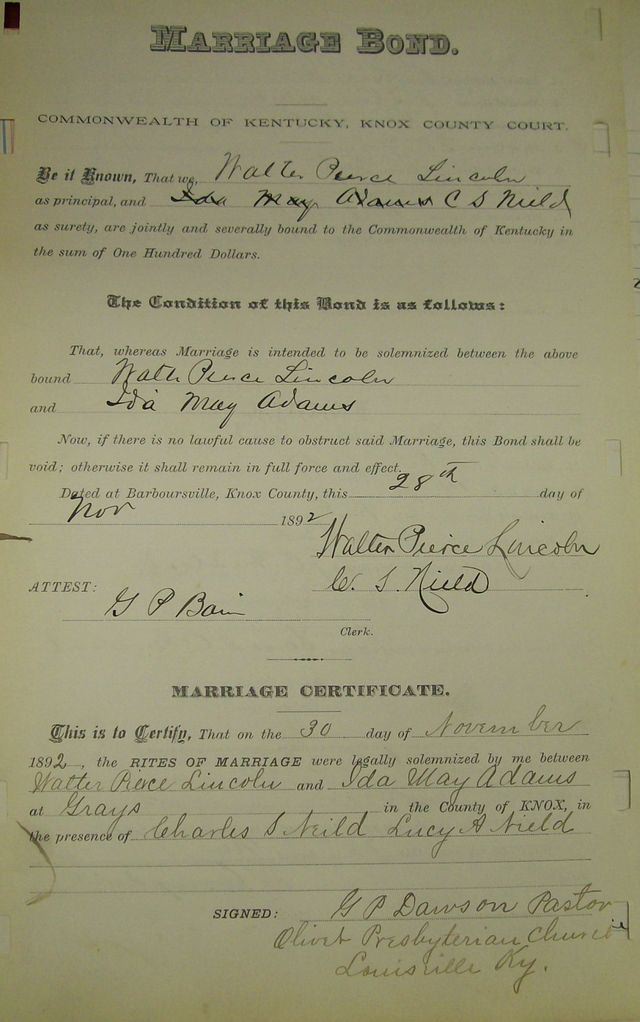 MARRIAGE BOND.
COMMONWEALTH OF KENTUCKY, KNOX COUNTY COURT.
Be it Known, That we, Walter Pierce Lincoln
as principal, and Ida May Adams C S Nield
as surety, are jointly and severally bound to the Commonwealth of Kentucky in
the sum of One Hundred Dollars.
The Condition of this Bond is as follows:
That, whereas Marriage is intended to be solemnized between the above
bound Walter Pierce Lincoln
and Ida May Adams
Now, if there is no lawful cause to obstruct said Marriage, this Bond shall be
void; otherwise it shall remain in full force and effect.
Dated at Barboursville, Knox County, this 28th day of
Nov 1892
Walter Pierce Lincoln
ATTEST: C. S. Nield
G P Bain
Clerk.
MARRIAGE CERTIFICATE.
This is to Certify, That on the 30 day of November
1892, the RITES OF MARRIAGE were legally solemnized by me between
Walter Pierce Lincoln and Ida May Adams
at Grays in the County of KNOX, in
the presence of Charles S Neild Lucy A Nield
SIGNED: G P Dawson Pastor
Olivet Presbyterian Church
Louisville Ky.